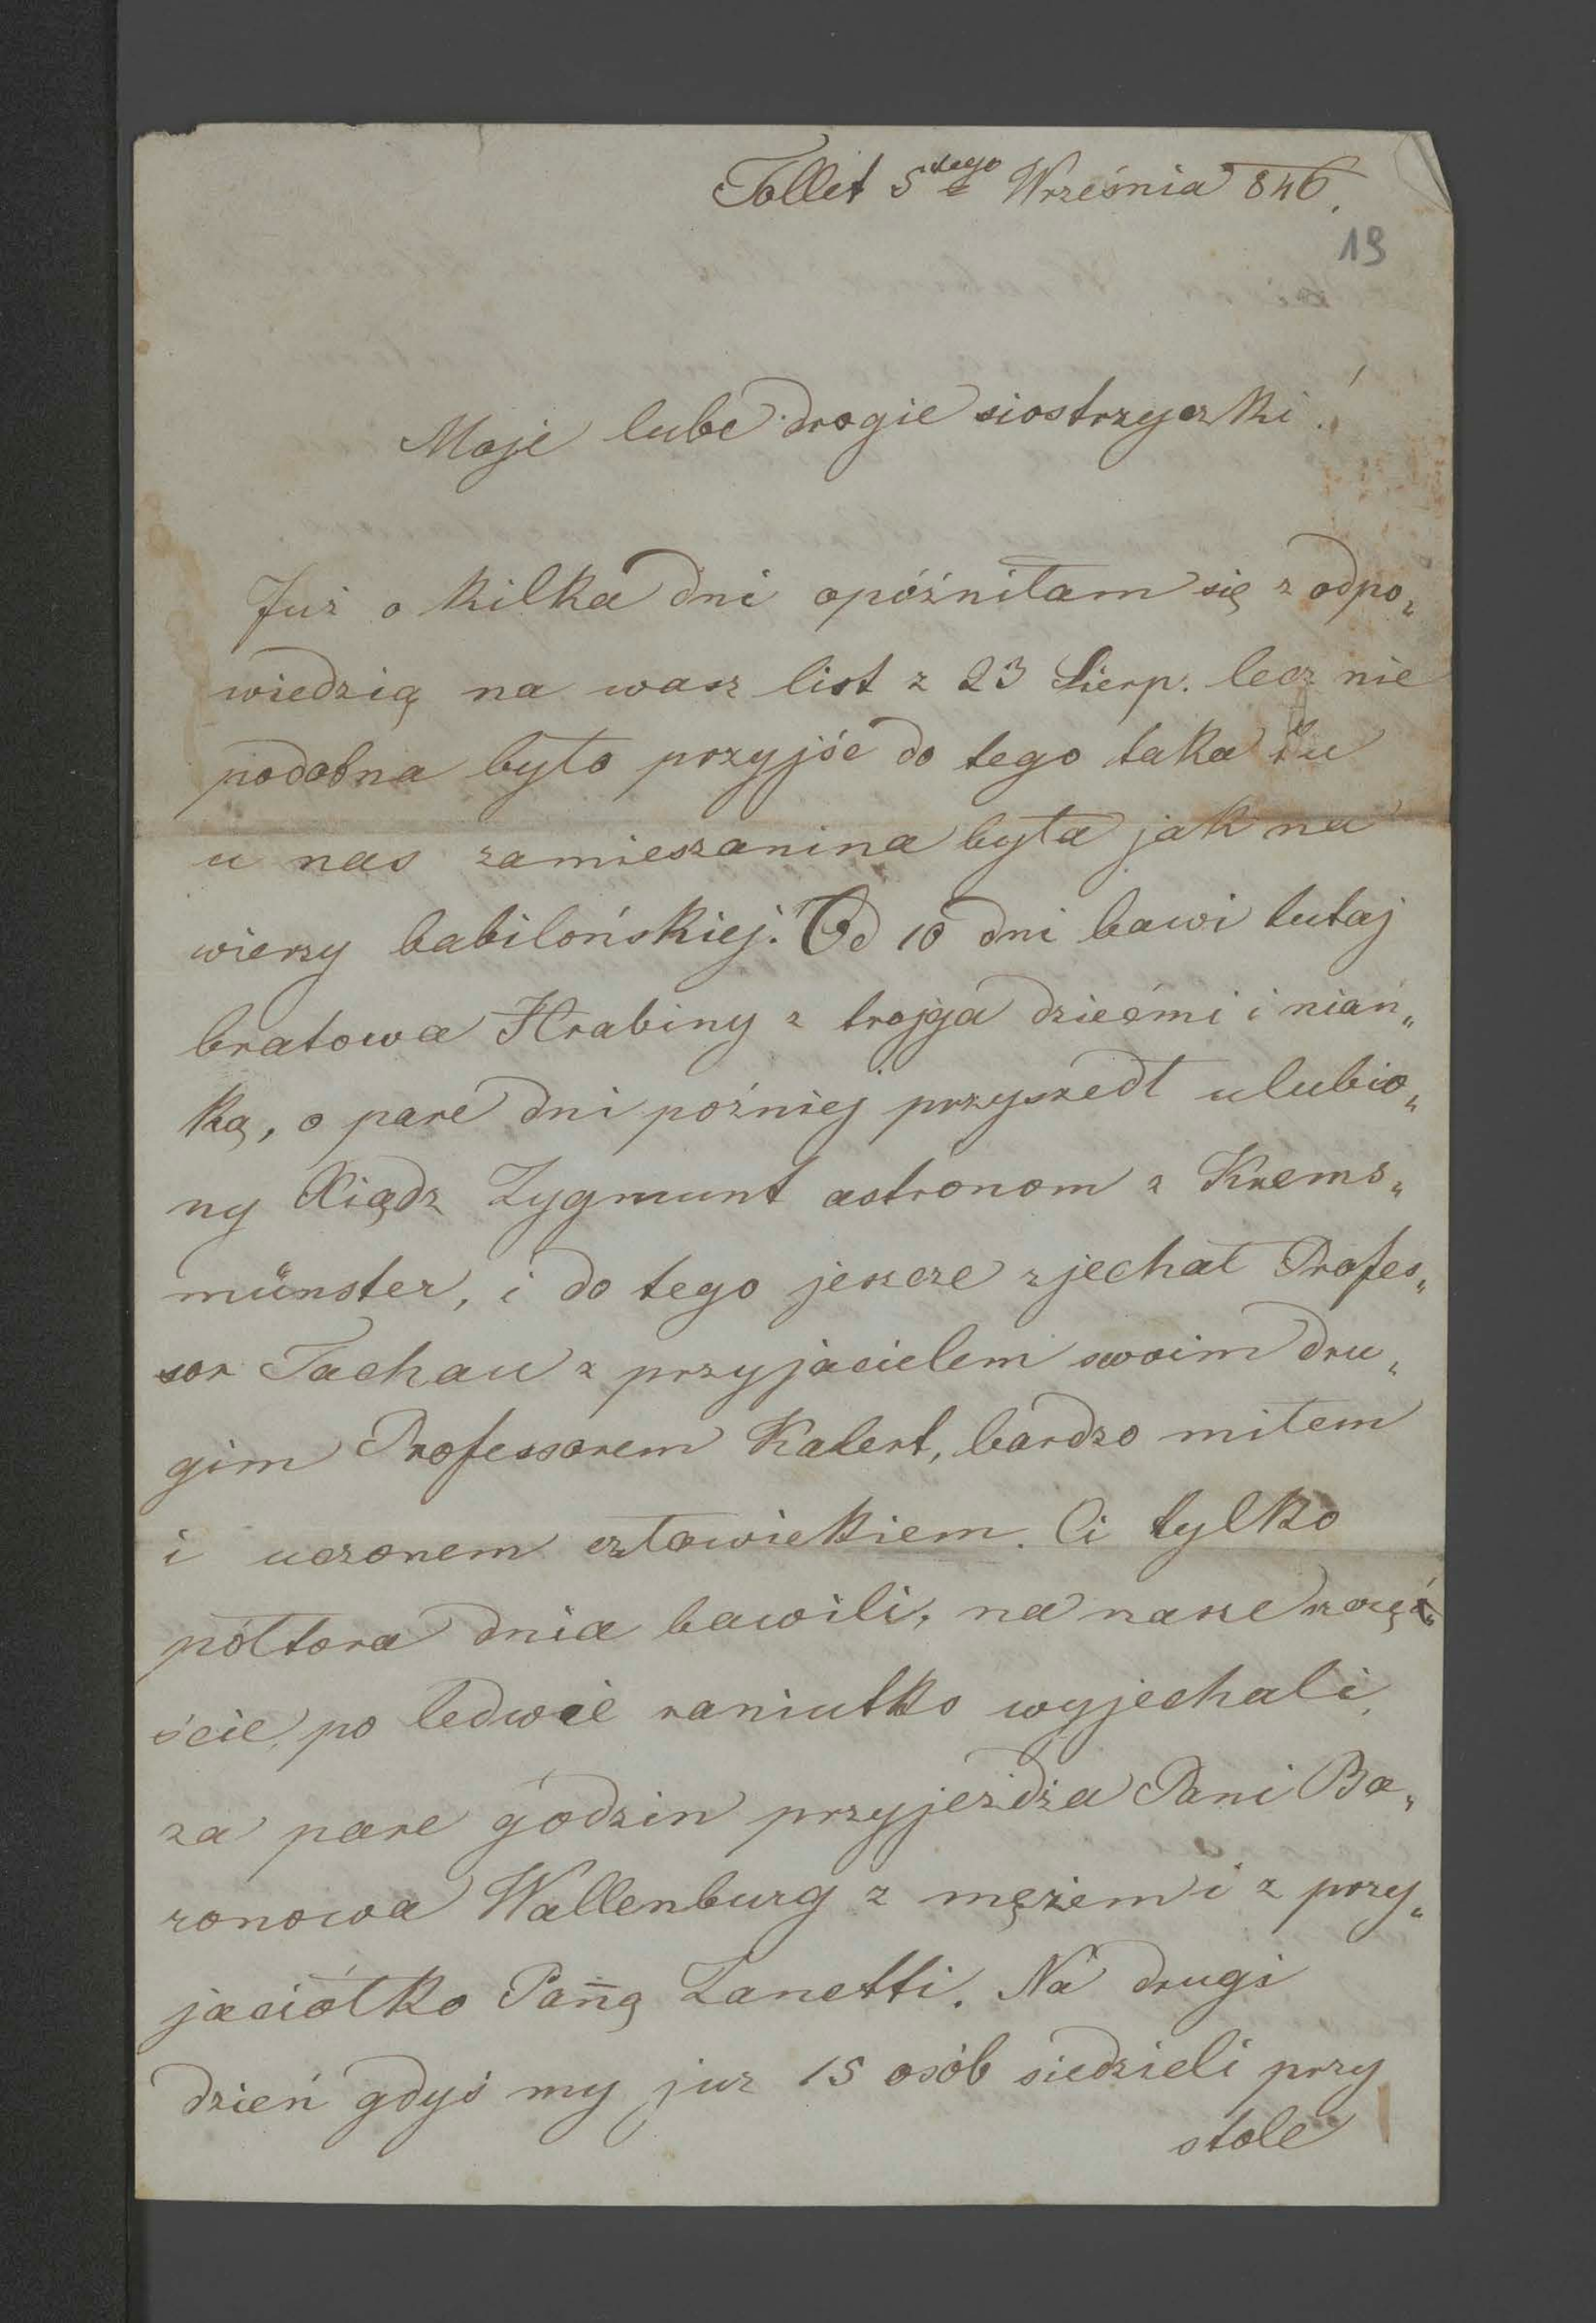 Tollet 5tego Września 846.
19
Moje lube drogie siostrzyczki!
Już o kilka dni opóźniłam się z odpo„
wiedzią na wasz list z 23 Sierp. lecz nie
podobna było przyjść do tego taka tu
u nas zamieszanina była jak na
wierzy babilońskiej. Od 10 dni bawi tutaj
bratowa Hrabiny z trojga dziećmi i niań„
ką, o pare dni poźniej przyszedł ulubio„
ny Xiądz Zygmunt astronom z Krems„
münster, i do tego jeszcze zjechał Profes„
sor Tachau z przyjacielem swoim dru„
gim Professorem Kalert, bardzo miłem
i uczonem człowiekiem. Ci tylko
półtora dnia bawili, na nasze szczęś„
ście, po ledwie raniutko wyjechali,
za pare godzin przyjeżdża Pani Ba„
ronowa Wallenburg z mężem i z przy„
jaciółko Pañą Zanetti. Na drugi
dzień gdyś my już 15 osób siedzieli przy
stole